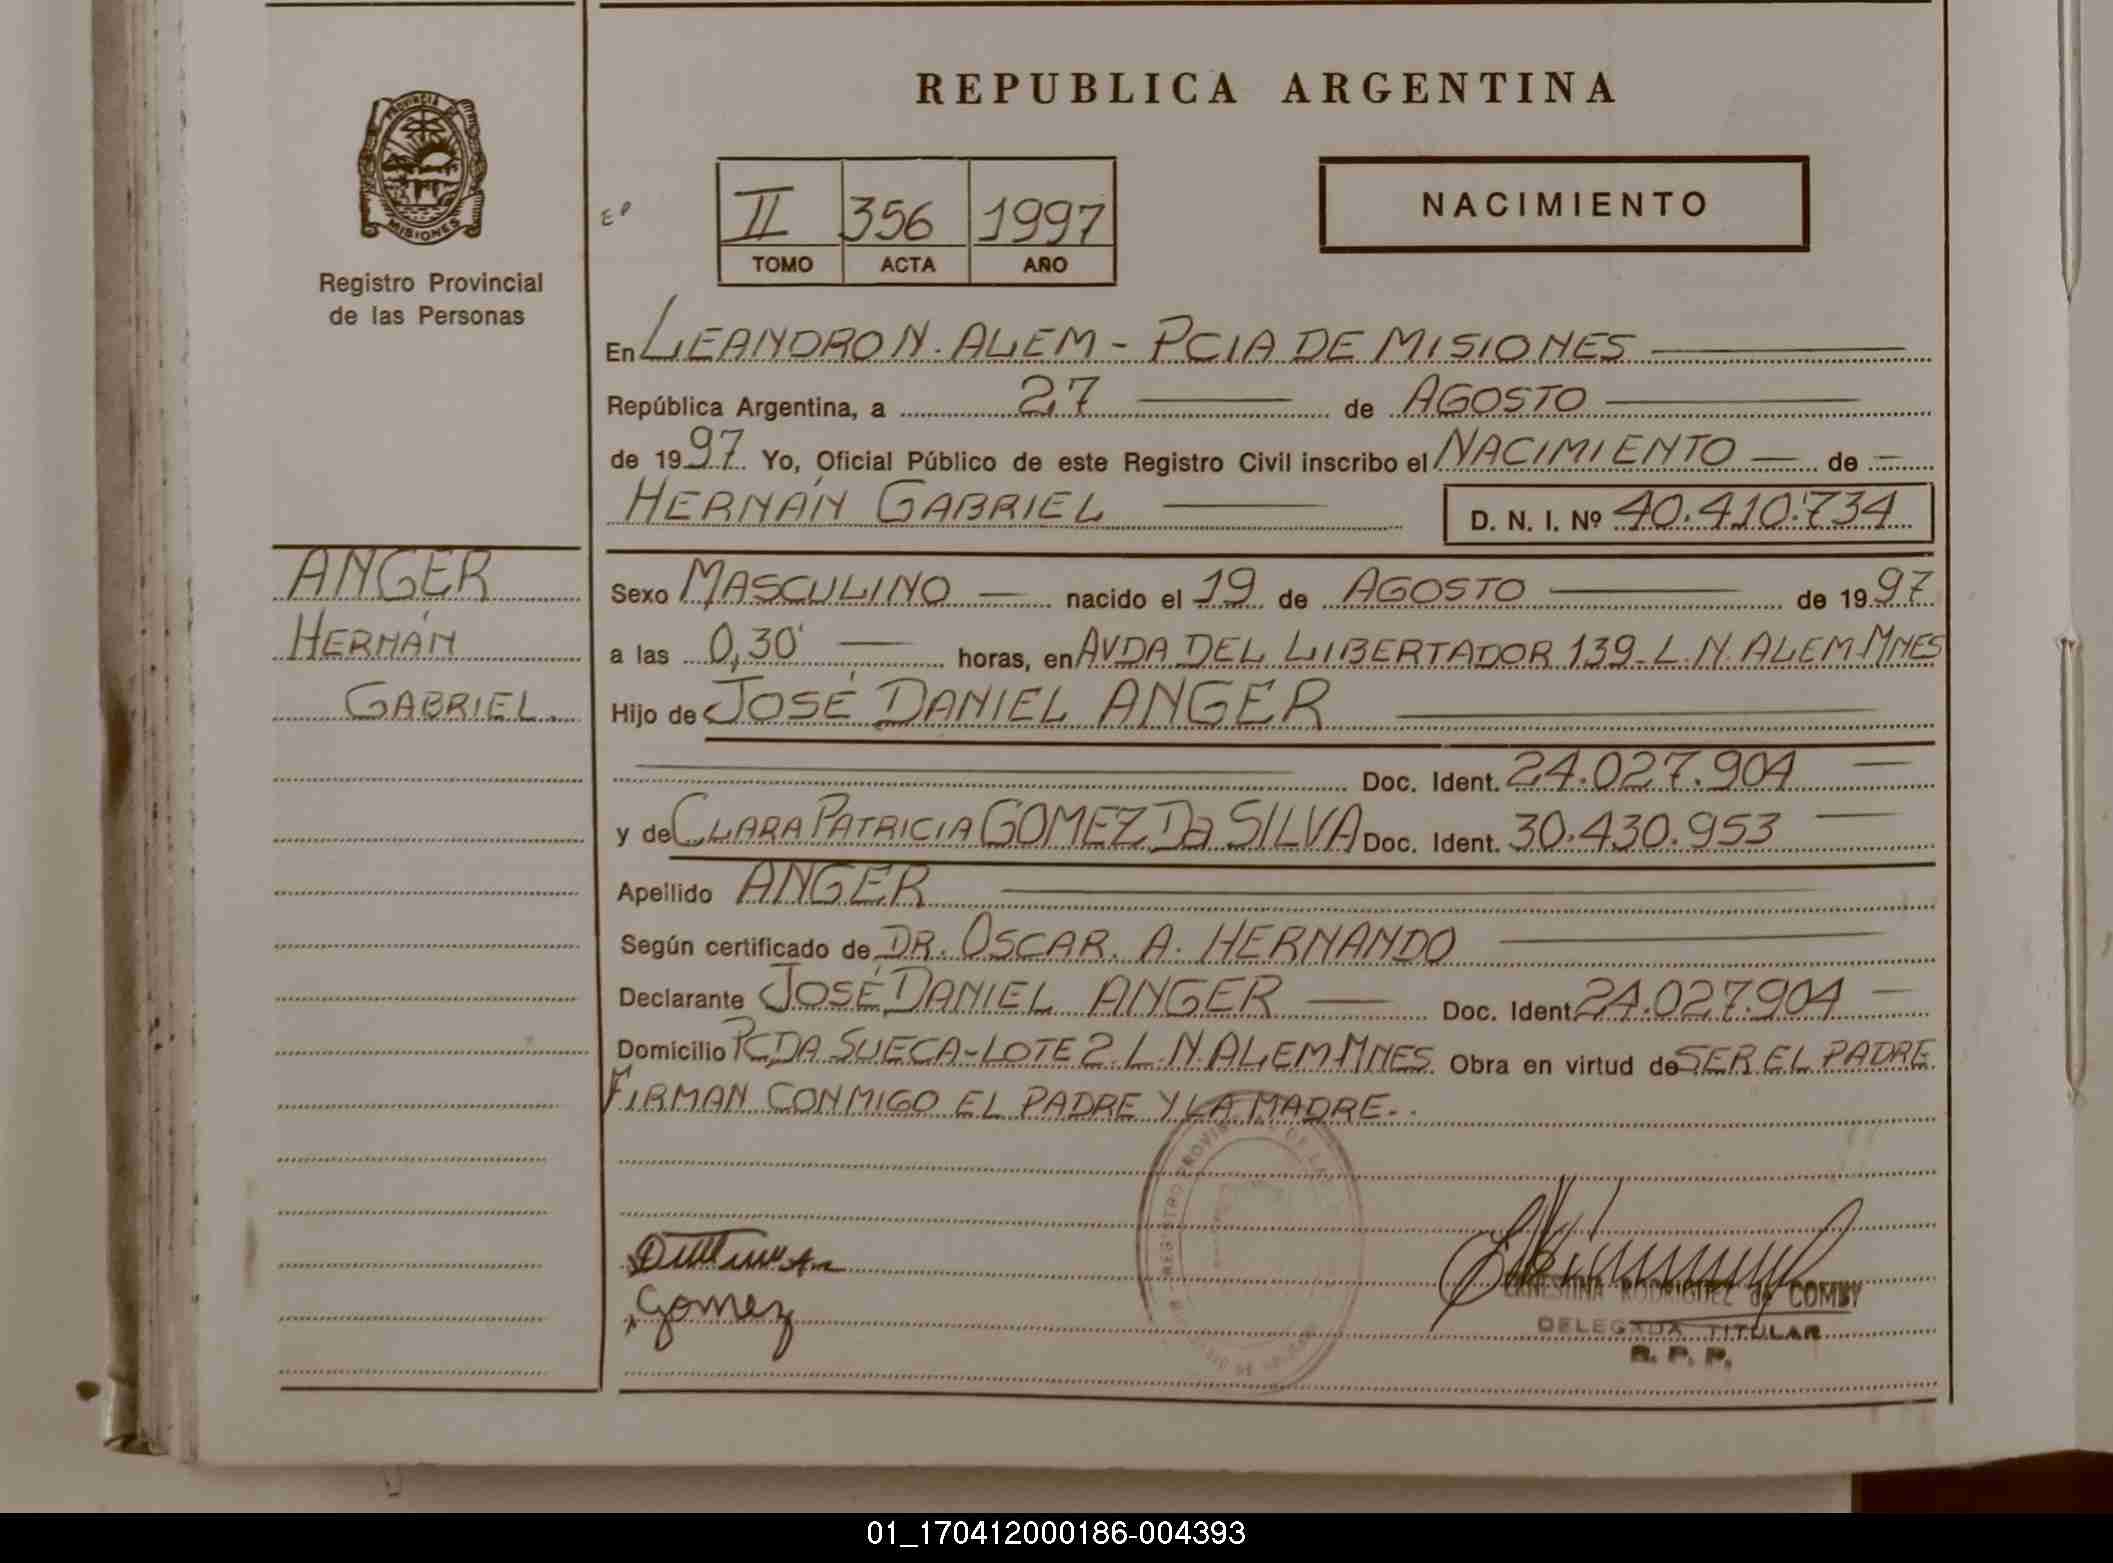 REPUBLICA ARGENTINA
PROVINCIA DE
MISIONES
Registro Provincial
de las Personas
II 356 1997
TOMO ACTA AÑO
NACIMIENTO
En LEANDRO N. ALEM - PCIA DE MISIONES
República Argentina, a 27 de AGOSTO
de 1997 Yo, Oficial Público de este Registro Civil inscribo el NACIMIENTO — de —
HERNÁN GABRIEL D. N. I. Nº 40.410.734
ANGER
HERNÁN
GABRIEL.
Sexo MASCULINO — nacido el 19 de AGOSTO de 1997
a las 0,30' — horas, en AVDA DEL LIBERTADOR 139-L.N.ALEM-MNES
Hijo de JOSÉ DANIEL ANGER
Doc. Ident. 24.027.904 —
y de CLARA PATRICIA GOMEZ Da SILVA Doc. Ident. 30.430.953 —
Apellido ANGER
Según certificado de DR. OSCAR. A. HERNANDO
Declarante JOSÉ DANIEL ANGER — Doc. Ident. 24.027.904 —
Domicilio PCDA SUECA-LOTE 2.L.N.ALEM-MNES. Obra en virtud de SER EL PADRE.
FIRMAN CONMIGO EL PADRE Y LA MADRE..
Gomez
ERNESTINA RODRIGUEZ de COMBY
DELEGADA TITULAR
R. P. P.
01_170412000186-004393